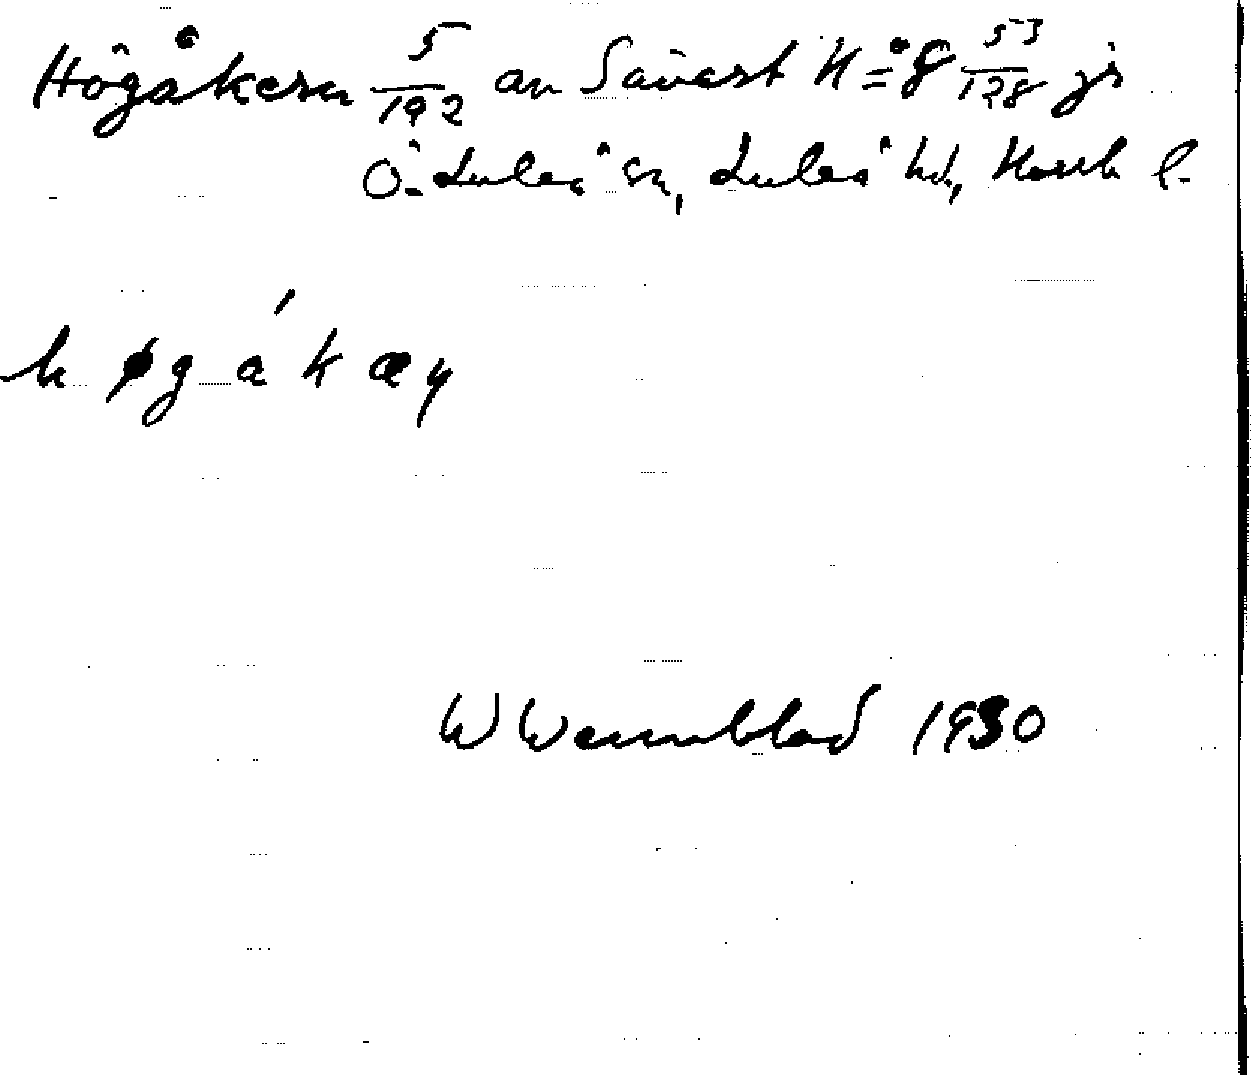 Högåkern 5/192 av Sävast N:o 8 53/128 js
Ö-Luleå sn, Luleå hd, Norrb l.
h ø g á k æ ŋ
W Wennblad 1930